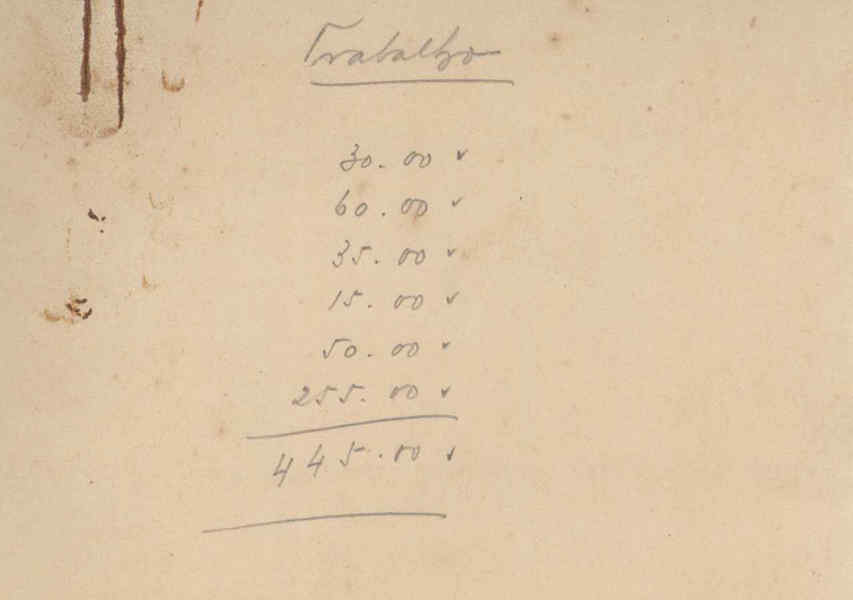 Trabalho
30.00 ✓
60.00 ✓
35.00 ✓
15.00 ✓
50.00 ✓
255.00 ✓
445.00 ✓